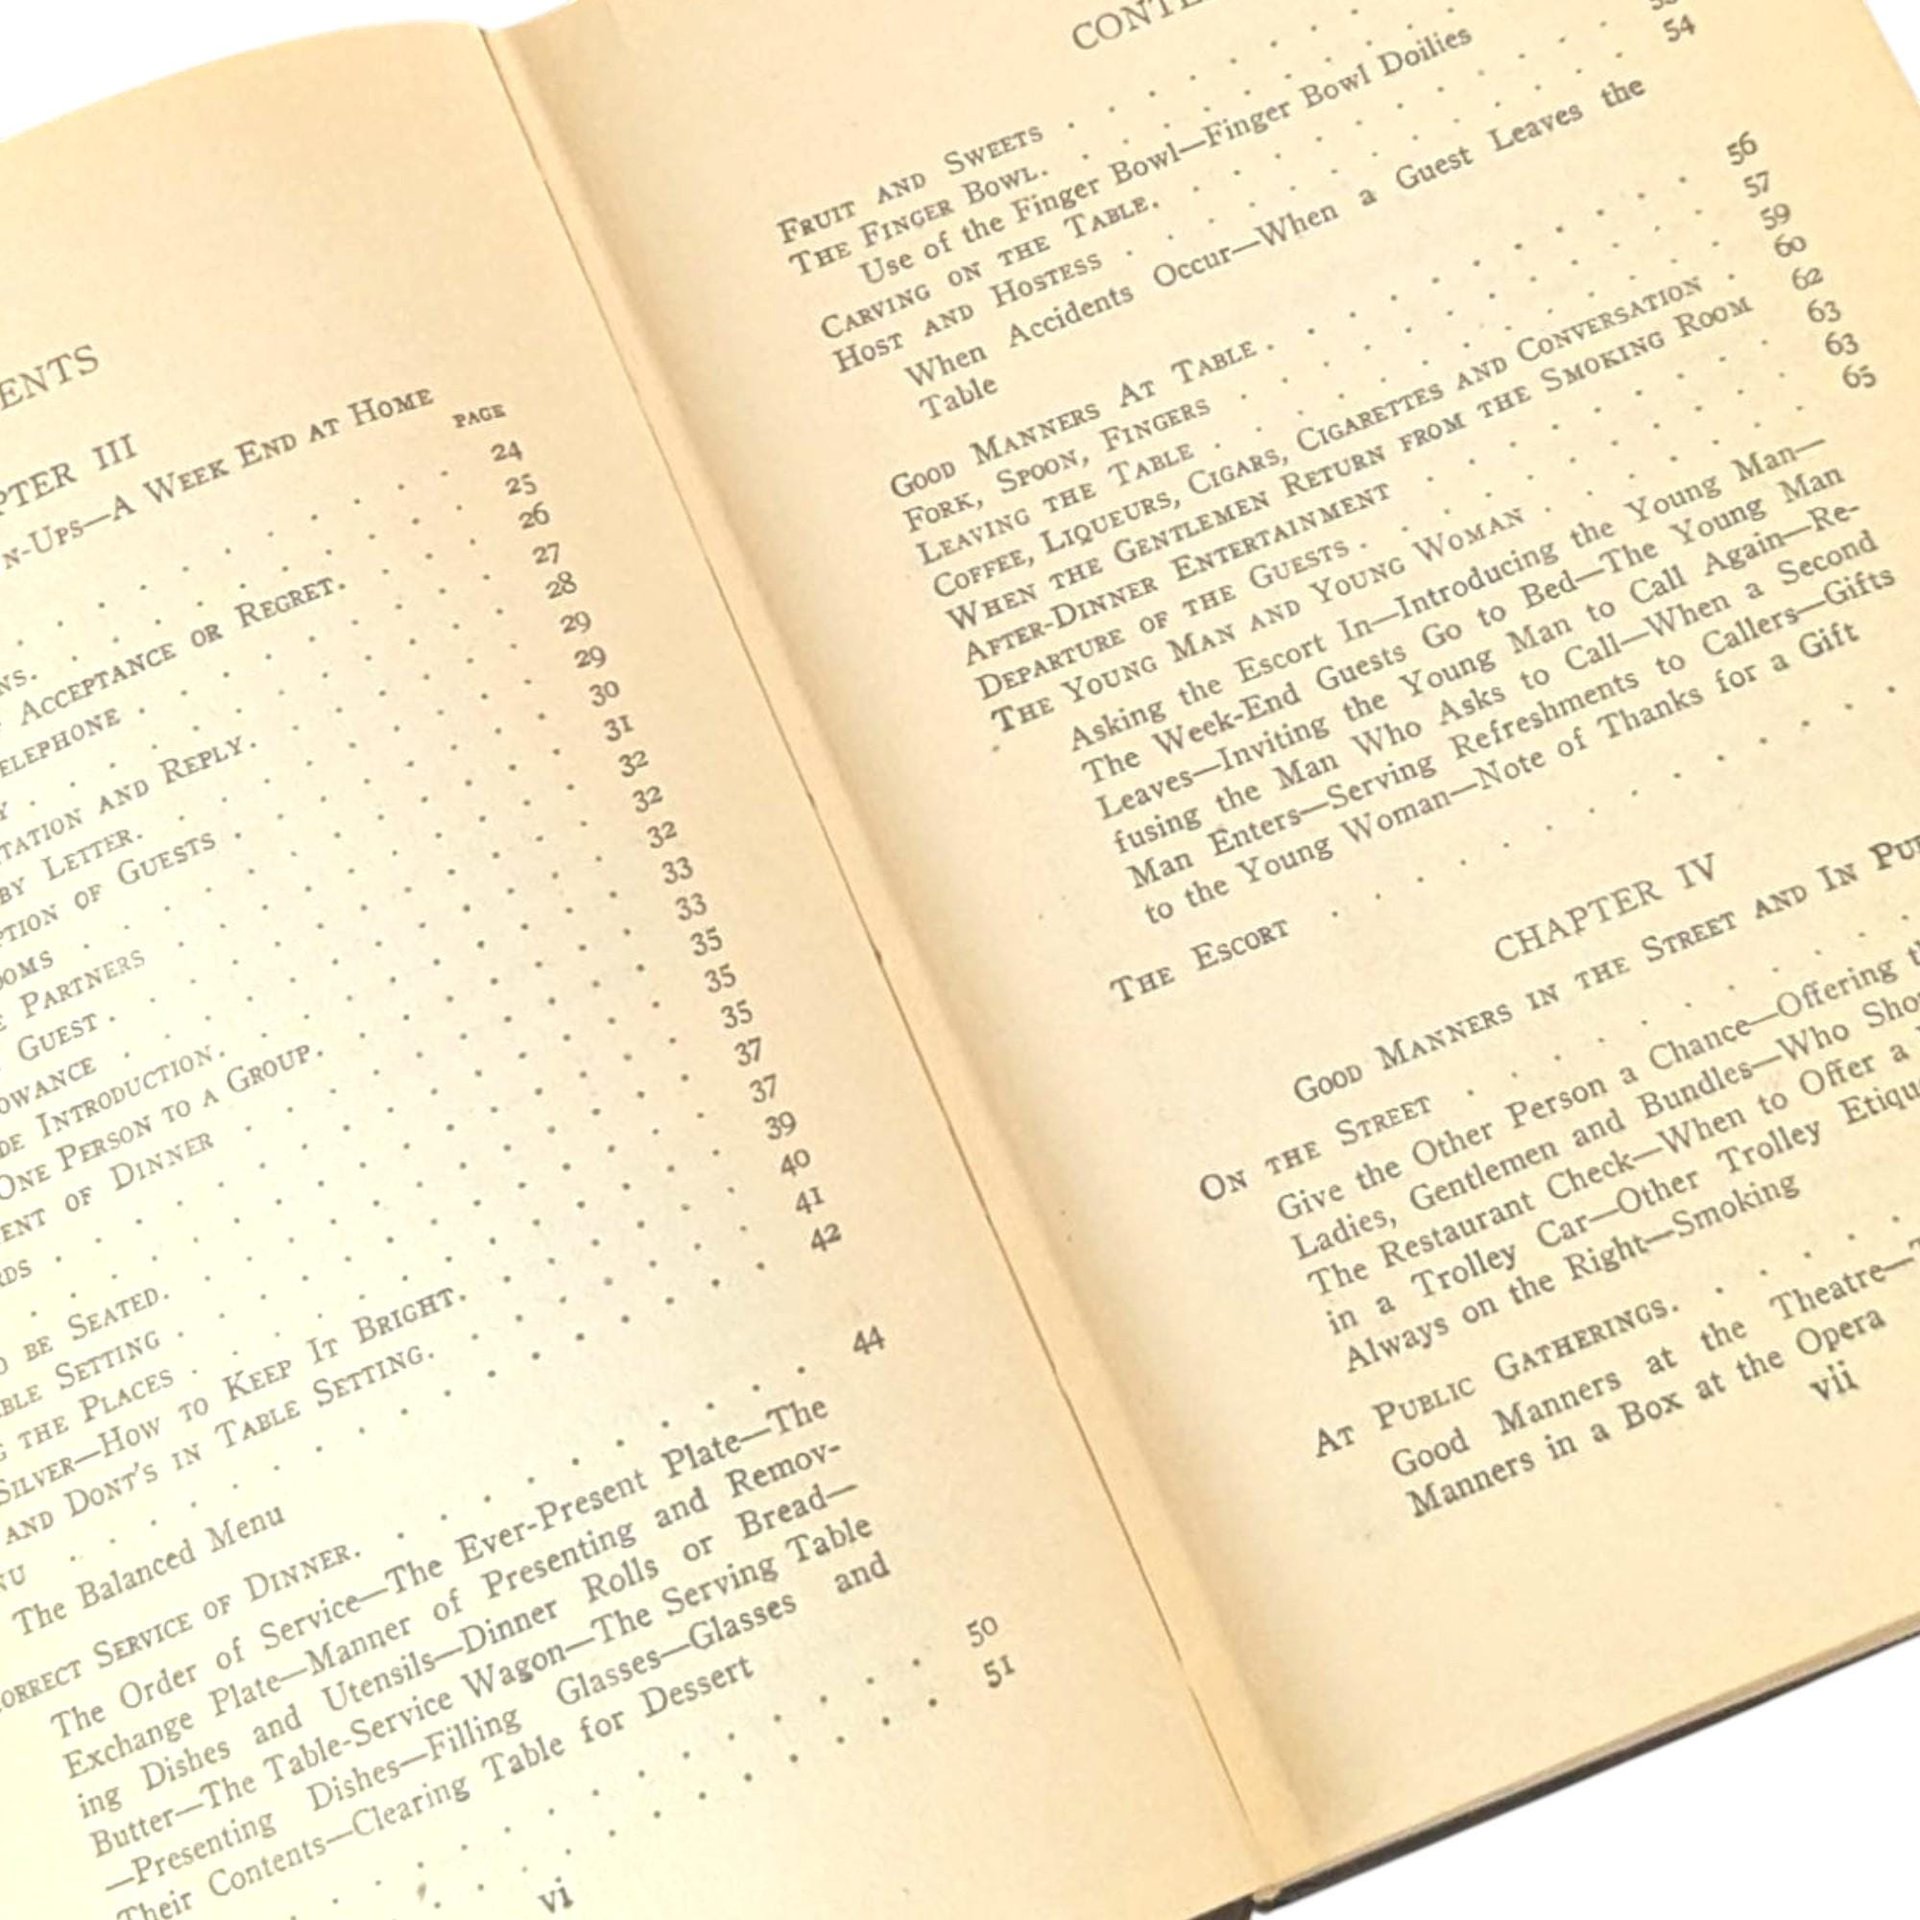 PAGE
24
25
ACCEPTANCE OR REGRET. 26
27
28
AND REPLY. 29
BY LETTER. 29
OF GUESTS 30
31
PARTNERS 32
GUEST 32
32
INTRODUCTION. 33
ONE PERSON TO A GROUP. 33
OF DINNER 35
35
35
BE SEATED. 37
SETTING 37
THE PLACES 39
SILVER—HOW TO KEEP IT BRIGHT. 40
AND DONT'S IN TABLE SETTING. 41
42
The Balanced Menu
SERVICE OF DINNER. 44
The Order of Service—The Ever-Present Plate—The
Exchange Plate—Manner of Presenting and Remov-
ing Dishes and Utensils—Dinner Rolls or Bread—
Butter—The Table-Service Wagon—The Serving Table
—Presenting Dishes—Filling Glasses—Glasses and
Their Contents—Clearing Table for Dessert
50
51
vi
FRUIT AND SWEETS
THE FINGER BOWL. 54
Use of the Finger Bowl—Finger Bowl Doilies
CARVING ON THE TABLE.
HOST AND HOSTESS
When Accidents Occur—When a Guest Leaves the
Table
GOOD MANNERS AT TABLE. 56
FORK, SPOON, FINGERS 57
LEAVING THE TABLE 59
COFFEE, LIQUEURS, CIGARS, CIGARETTES AND CONVERSATION 60
WHEN THE GENTLEMEN RETURN FROM THE SMOKING ROOM 62
AFTER-DINNER ENTERTAINMENT 63
DEPARTURE OF THE GUESTS 63
THE YOUNG MAN AND YOUNG WOMAN 65
Asking the Escort In—Introducing the Young Man—
The Week-End Guests Go to Bed—The Young Man
Leaves—Inviting the Young Man to Call Again—Re-
fusing the Man Who Asks to Call—When a Second
Man Enters—Serving Refreshments to Callers—Gifts
to the Young Woman—Note of Thanks for a Gift
THE ESCORT
CHAPTER IV
GOOD MANNERS IN THE STREET AND IN
ON THE STREET
Give the Other Person a Chance—Offering
Ladies, Gentlemen and Bundles—Who
The Restaurant Check—When to Offer a
in a Trolley Car—Other Trolley
Always on the Right—Smoking
AT PUBLIC GATHERINGS.
Good Manners at the Theatre—
Manners in a Box at the Opera
vii